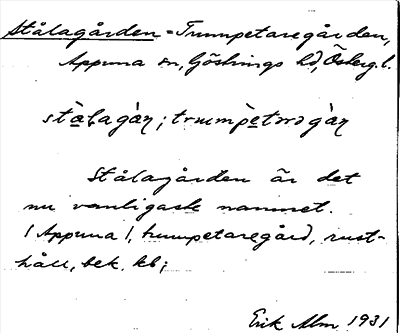 Stålagården = Trumpetaregården,
Appuna sn, Göstrings hd, Österg. l.
stå̀lagàɳ; trumpè̱tərəgàɳ
Stålagården är det
nu vanligaste namnet.
/Appuna/, trumpetaregård, rust-
håll, bek. kb;
Erik Alm 1931